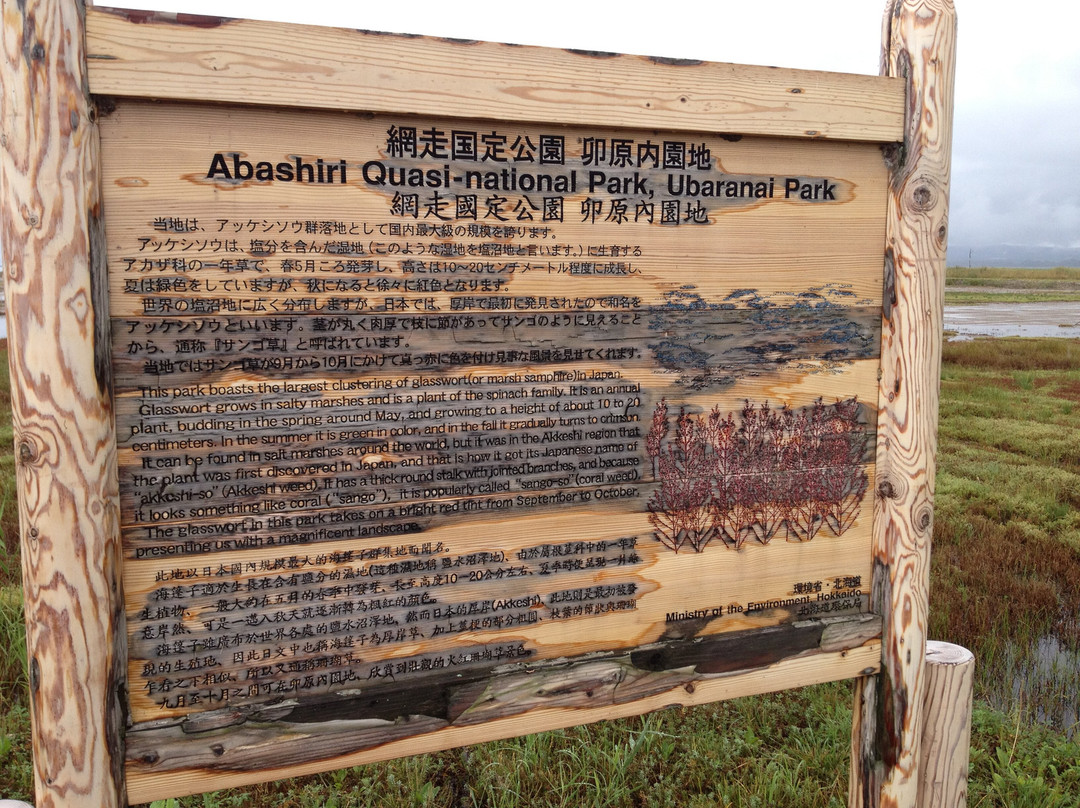 網走国定公園 卯原内園地
Abashiri Quasi-national Park, Ubaranai Park
網走國定公園 卯原內園地
当地は、アッケシソウ群落地として国内最大級の規模を誇ります。
アッケシソウは、塩分を含んだ湿地（このような湿地を塩沼地と言います。）に生育する
アカザ科の一年草で、春5月ころ発芽し、高さは10〜20センチメートル程度に成長し、
夏は緑色をしていますが、秋になると徐々に紅色となります。
世界の塩沼地に広く分布しますが、日本では、厚岸で最初に発見されたので和名を
アッケシソウといいます。茎が丸く肉厚で枝に節があってサンゴのように見えること
から、通称『サンゴ草』と呼ばれています。
当地ではサンゴ草が9月から10月にかけて真っ赤に色を付け見事な風景を見せてくれます。
This park boasts the largest clustering of glasswort(or marsh samphire)in Japan.
Glasswort grows in salty marshes and is a plant of the spinach family. It is an annual
plant, budding in the spring around May, and growing to a height of about 10 to 20
centimeters. In the summer it is green in color, and in the fall it gradually turns to crimson.
It can be found in salt marshes around the world, but it was in the Akkeshi region that
the plant was first discovered in Japan, and that is how it got its Japanese name of
"akkeshi-so" (Akkeshi weed). It has a thick round stalk with jointed branches, and because
it looks something like coral ("sango"), it is popularly called "sango-so" (coral weed).
The glasswort in this park takes on a bright red tint from September to October,
presenting us with a magnificent landscape.
此地以日本國內規模最大的海蓬子群集地而聞名。
海蓬子適於生長在含有鹽分的濕地(這種濕地稱 鹽水沼澤地)、由於屬藜草科中的一年草
生植物、一般大約在五月的春季中發芽、長至高度10－20公分左右、夏季時便呈顯一片綠
意岸然、可是一邁入秋天就逐漸轉為楓紅的顏色。
海蓬子雖廣布於世界各處的鹽水沼澤地、然而日本的厚岸(Akkeshi)、此地則是最初被發
現的生殖地、因此日文中也稱海蓬子為厚岸草、加上莖梗的部分粗圓、枝葉的節狀與珊瑚
乍看之下相似、所以又通稱珊瑚草。
九月至十月之間可在卯原內園地、欣賞到壯觀的火紅珊瑚草景色。
環境省・北海道
Ministry of the Environment, Hokkaido
北海道環保局